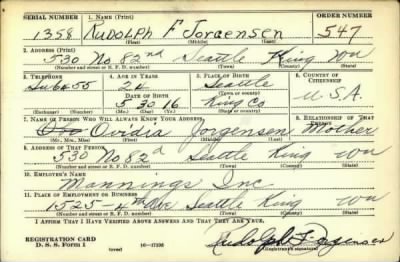 SERIAL NUMBER 1. NAME (Print) ORDER NUMBER
1358 RUDOLPH F JORGENSEN 547
(First) (Middle) (Last)
2. ADDRESS (Print)
530 No 82nd Seattle King Wn
(Number and street or R. F. D. number) (Town) (County) (State)
3. TELEPHONE 4. AGE IN YEARS 5. PLACE OF BIRTH 6. COUNTRY OF CITIZENSHIP
Su 6455 24 Seattle
(Town or county)
DATE OF BIRTH
5 30 16 King Co U.S.A.
(Exchange) (Number) (Mo.) (Day) (Yr.) (State or country)
7. NAME OF PERSON WHO WILL ALWAYS KNOW YOUR ADDRESS 8. RELATIONSHIP OF THAT PERSON
Ovidia Jorgensen Mother
(Mr., Mrs., Miss) (First) (Middle) (Last)
9. ADDRESS OF THAT PERSON
530 No 82d Seattle King Wn
(Number and street or R. F. D. number) (Town) (County) (State)
10. EMPLOYER'S NAME
Mannings Inc
11. PLACE OF EMPLOYMENT OR BUSINESS
1525-4th Ave Seattle King Wn
(Number and street or R. F. D. number) (Town) (County) (State)
I AFFIRM THAT I HAVE VERIFIED ABOVE ANSWERS AND THAT THEY ARE TRUE.
REGISTRATION CARD
D. S. S. Form 1 (over) 16-17105 Rudolph F Jorgensen
(Registrant's signature)